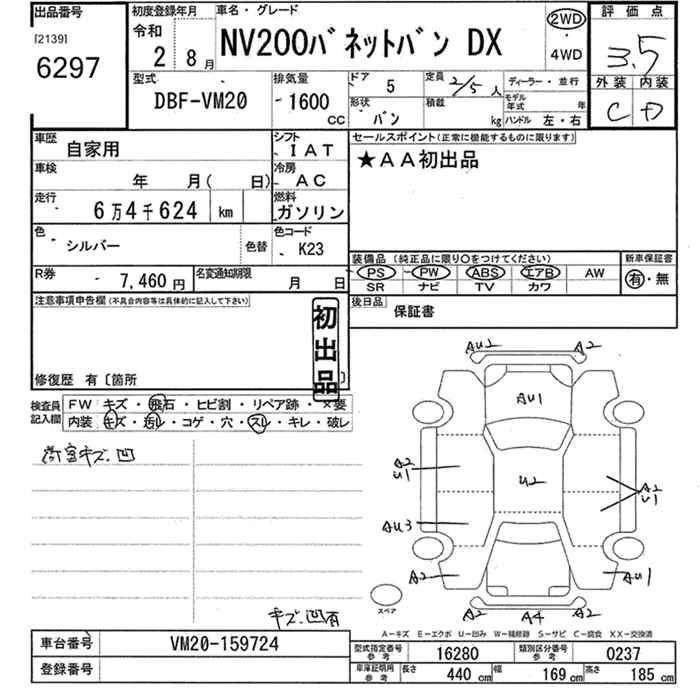 出品番号
[2139]
6297
初度登録年月
令和
2 8月
車名・グレード
NV200バネットバン DX
2WD
・
4WD
評価点
3.5
外装 内装
C D
型式
DBF-VM20
排気量
1600
CC
ドア 5
定員 2/5人
ディーラー・並行
形状 バン
積載 kg
モデル年式 年
ハンドル 左・右
車歴 自家用
シフト IAT
車検 年 月( 日)
冷房 AC
走行 6万4千624 km
燃料 ガソリン
色 シルバー 色替
色コード K23
R券 7,460円
名変通知期限 月 日
セールスポイント(正常に機能するものに限ります)
★AA初出品
装備品 (純正品に限り〇をつけてください)
新車保証書
PS PW ABS エアB AW
SR ナビ TV カワ
有・無
後日品 保証書
注意事項申告欄(不具合内容等は具体的に記入して下さい)
初出品
修復歴 有〔箇所 〕
検査員記入欄
FW キズ・飛石・ヒビ割・リペア跡・×要
内装 キズ・汚レ・コゲ・穴・スレ・キレ・破レ
荷室キズ、凹
キズ、凹有
AU2 A2
AU1
A2
U1
U2
A2
U1
AU3
A2 AU1
A2 A4 A2
スペア
A−キズ E−エクボ U−凹み W−補修跡 S−サビ C−腐食 XX−交換済
車台番号 VM20-159724
登録番号
型式指定番号参考 16280
類別区分番号参考 0237
車庫証明用参考 長さ 440cm 幅 169cm 高さ 185cm